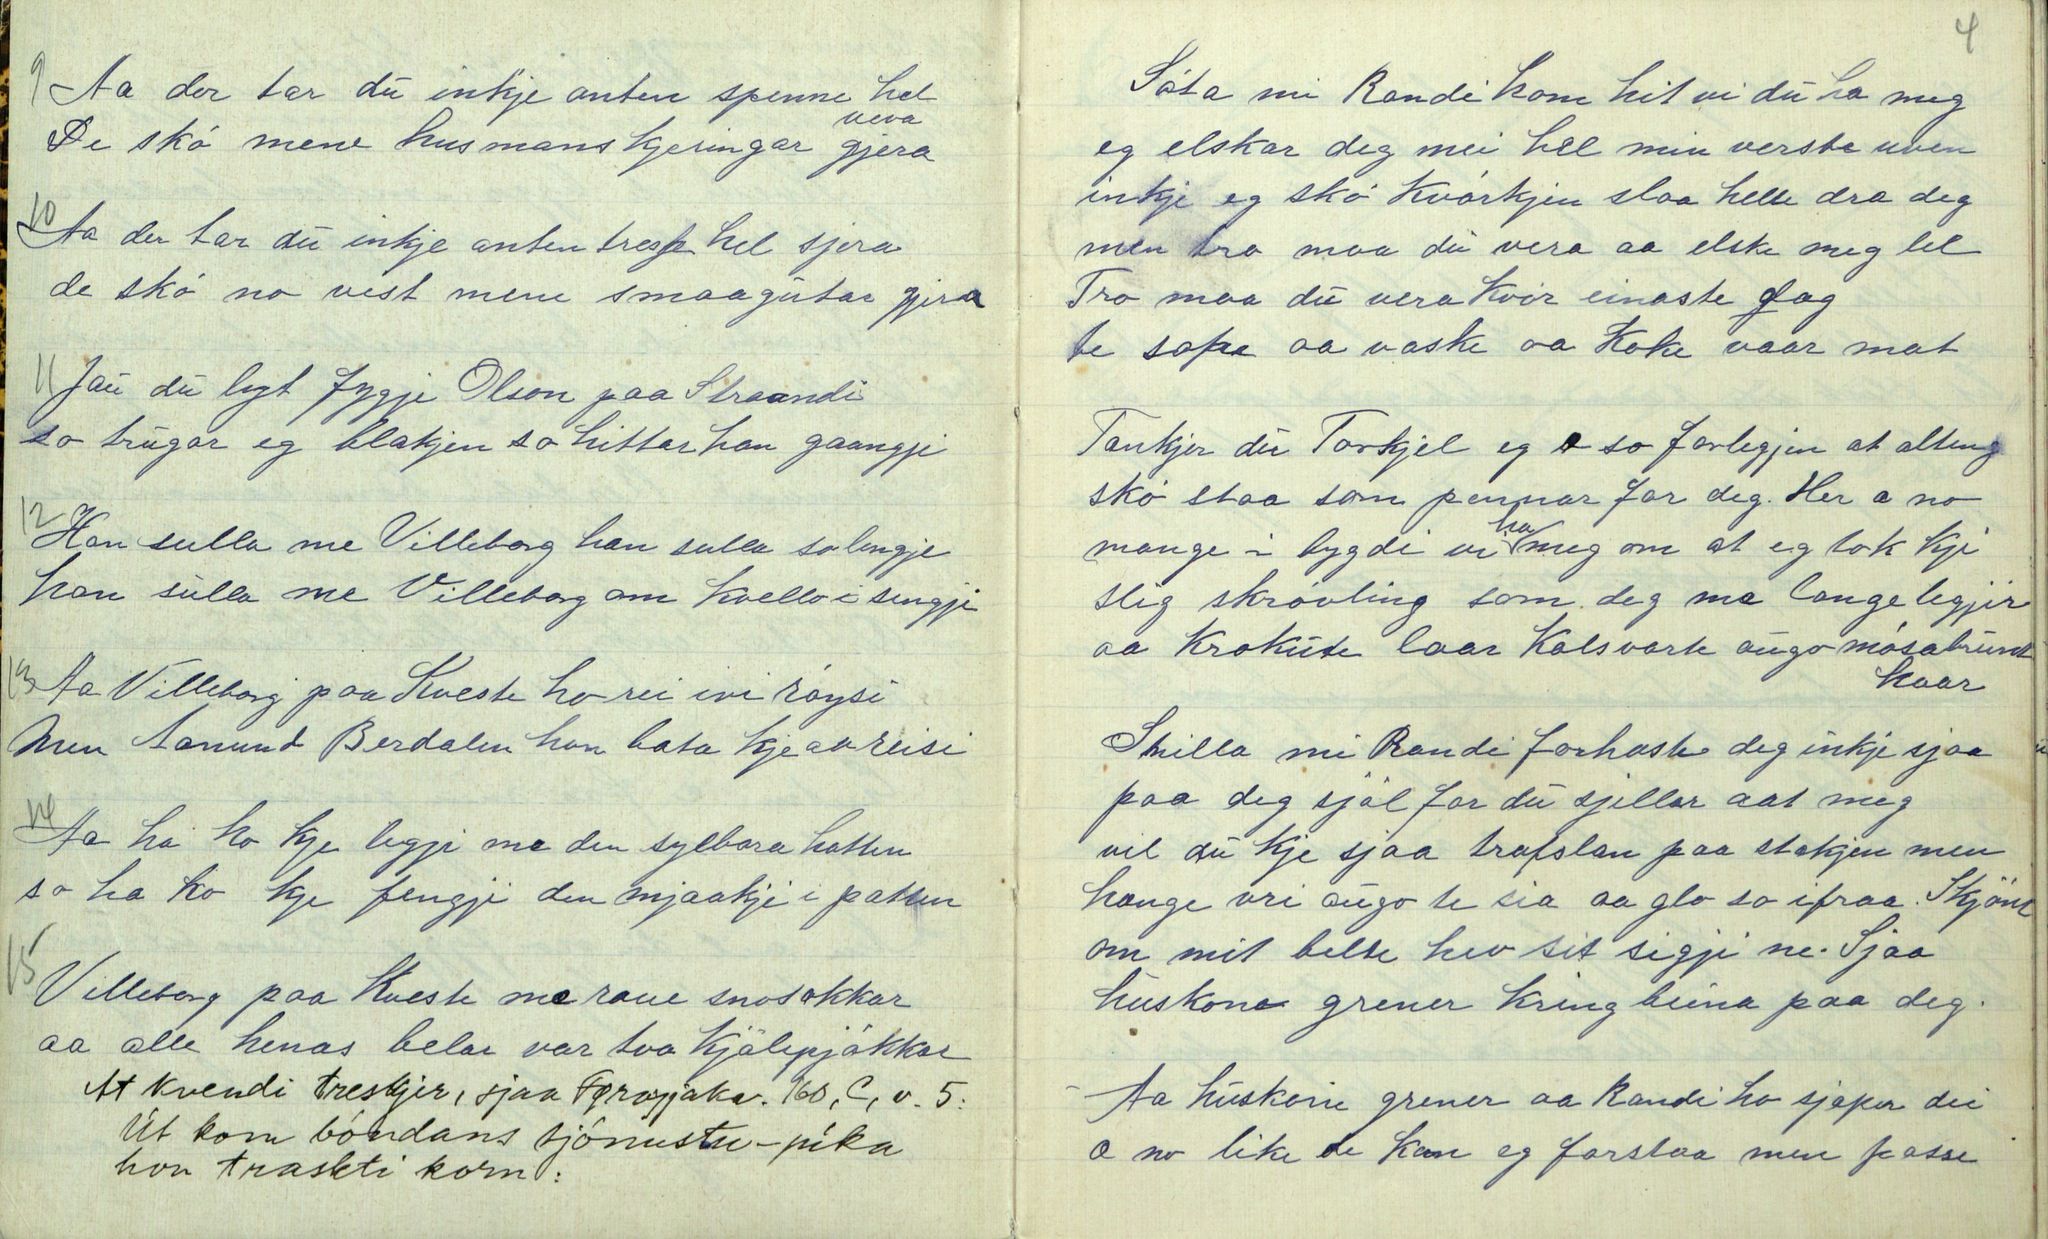 9 Aa der tar du inkje anten spenne hel
veva
De skó mene husmanskjeringar gjera
10
Aa der tar du inkje anten treskje hel sjera
de skó no vist mene smaagutar gjera
11 Jau du lyt fygje Olson paa Straandi
so trugar eg blakjen so hittar han gaangji
12
Han sulla me Villeborg han sulla so lengje
han sulla me Villeborg om kvello i sengji
13 Aa Villeborg paa Kveste ho rei ivi röysi
Men Aamund Berdalen han bata kje aa reisi
14
Aa ha ho kje legji me den sylbora hatten
so ha ho kje fengji den mjaakji i patten
15
Villeborg paa Kveste me raue snosokkar
aa alle henas belar var tvo kjólepjókkar
At kvendi treskjer, sjaa Førøyjakv. 160, C, v. 5:
Út kom bóndans tjónustu-píka
hon traskti korn:
4
Sóta mi Randi kom hit vi du ha meg
eg elskar deg mei hel min verste uven
inkje eg skó kvórkjen slaa helle dra deg
men tro maa du vera aa elske meg lel
Tro maa du vera kvór einaste dag
te sope aa vaske aa koke vaar mat
Tænkjer du Torkjel eg æ so forlegjen at alting
skó staa som pennar for deg. Her æ no
ha
mange i bygdi vi meg om at eg tok kji
slig skróvling som deg me lange leggjir
aa krokute laar kolsvarte augo mósabrunt
haar
Stilla mi Randi forhaste deg inkje sjaa
paa deg sjól for du sjellar aat meg
vil du kje sjaa trafslan paa stakjen men
hange vri augo te sia aa glo so ifraa. Skjónt
om mit belte hev sit sigji ne. Sjaa
huskone grener kring beina paa deg.
Aa huskone grener aa Randi ho sjeper dei
æ no like de kan eg forstaa men passe